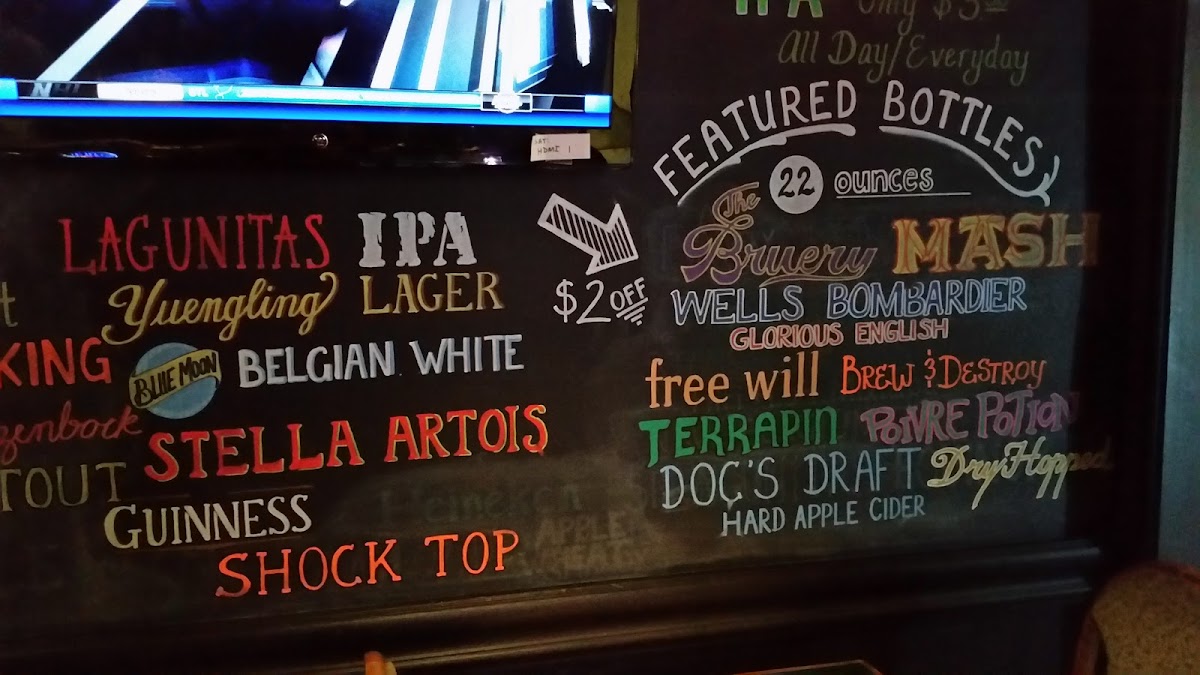 IPA Only $5.00
All Day/Everyday
FEATURED BOTTLES
22 ounces
The Bruery MASH
WELLS BOMBARDIER
GLORIOUS ENGLISH
free will BREW & DESTROY
TERRAPIN POIVRE POTION
DOC'S DRAFT Dry Hopped
HARD APPLE CIDER
$2 OFF
HDMI 1
LAGUNITAS IPA
Yuengling LAGER
KING BLUE MOON BELGIAN WHITE
zenbock STELLA ARTOIS
TOUT
GUINNESS
SHOCK TOP